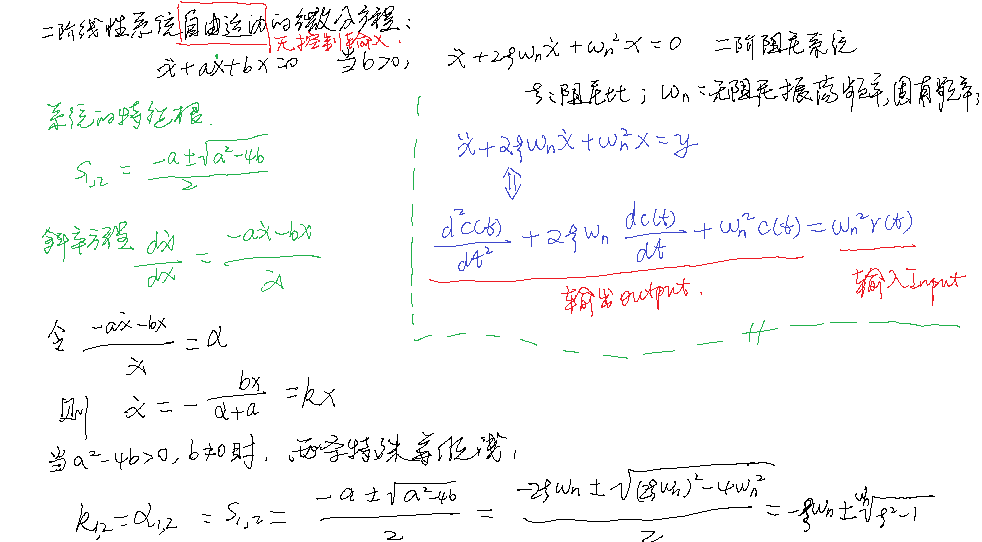 二阶线性系统自由运动的微分方程：
无控制输入.
ẍ+aẋ+bx=0 当b>0，
ẍ+2ξωnẋ+ωn²x=0 二阶阻尼系统
ξ：阻尼比；ωn=无阻尼振荡频率，固有频率；
系统的特征根.
s1,2 = (-a±√(a²-4b))/2
斜率方程 dẋ/dx = (-aẋ-bx)/ẋ
ẍ+2ξωnẋ+ωn²x=y
⇕
d²c(t)/dt² + 2ξωn dc(t)/dt + ωn²c(t)=ωn²r(t)
输出output.
输入Input
令 (-aẋ-bx)/ẋ = α
则 ẋ = - bx/(α+a) = kx
当a²-4b>0，b≠0时，两条特殊等倾线，
k1,2=α1,2 = s1,2 = (-a±√(a²-4b))/2 = (-2ξωn±√((2ξωn)²-4ωn²))/2 = -ξωn±ωn√(ξ²-1)